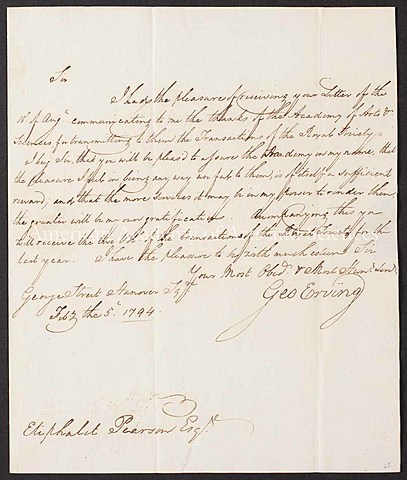 Sir
I had the pleasure of receiving your Letter of the
18th of Augt communicating to me the thanks of the Academy of Arts &
Sciences for transmitting to them the Transactions of the Royal Society.
I beg Sir, that you will be pleas'd to assure the Academy in my name, that
the pleasure I feel in being any way useful to them, is of itself a sufficient
reward, and that the more services it may be in my Power to render them,
the greater will be my own gratification. Accompanying this you
will receive the two Vols. of the transactions of the Royal Society for the
last year. I have the pleasure to be, with much esteem Sir
Your Most Obedt. & Most Humb. Servt.
Geo Erving
George Street Hanover Sq
Feby the 5th 1794.
Eliphalet Pearson Esqr.